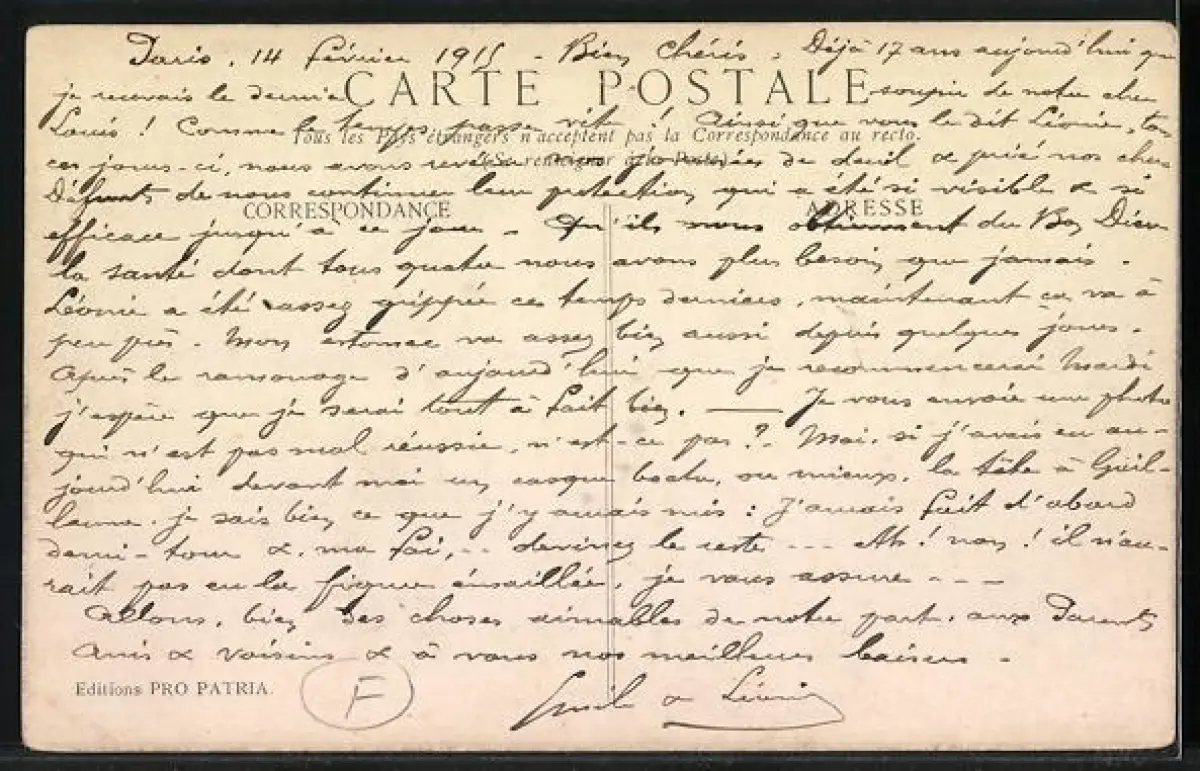 Paris, 14 février 1915 - Bien Chéris, Déjà 17 ans aujourd'hui que
je recevais le dernier soupir de notre cher
CARTE POSTALE
Louis ! Comme le temps passe vite ! Ainsi que vous le dit Léonie, tous
Tous les Pays étrangers n'acceptent pas la Correspondance au recto.
ces jours-ci, nous avons revécu nos journées de deuil & prié nos chers
(Se renseigner à la Poste)
Défunts de nous continuer leur protection, qui a été si visible & si
CORRESPONDANCE ADRESSE
efficace jusqu'à ce jour - Qu'ils nous obtiennent du Bon Dieu
la santé dont tous quatre nous avons plus besoin que jamais.
Léonie a été assez grippée ces temps derniers, maintenant ça va à
peu près. Mon estomac va assez bien aussi depuis quelques jours.
Après le ramonage d'aujourd'hui que je recommencerai Mardi
j'espère que je serai tout à fait bien. — Je vous envoie une photo
qui n'est pas mal réussie, n'est-ce pas ? Moi, si j'avais eu au-
jourd'hui devant moi un casque boche, ou mieux, la tête à Guil-
laume, je sais bien ce que j'y aurais mis : J'aurais fait d'abord
demi-tour &, ma foi, .. devinez le reste ... Ah ! non ! il n'au-
rait pas eu la figure émaillée, je vous assure - - -
Allons, bien des choses aimables de notre part, aux Parents
Amis & voisins & à vous nos meilleurs baisers -
Editions PRO PATRIA. F
Emile & Léonie